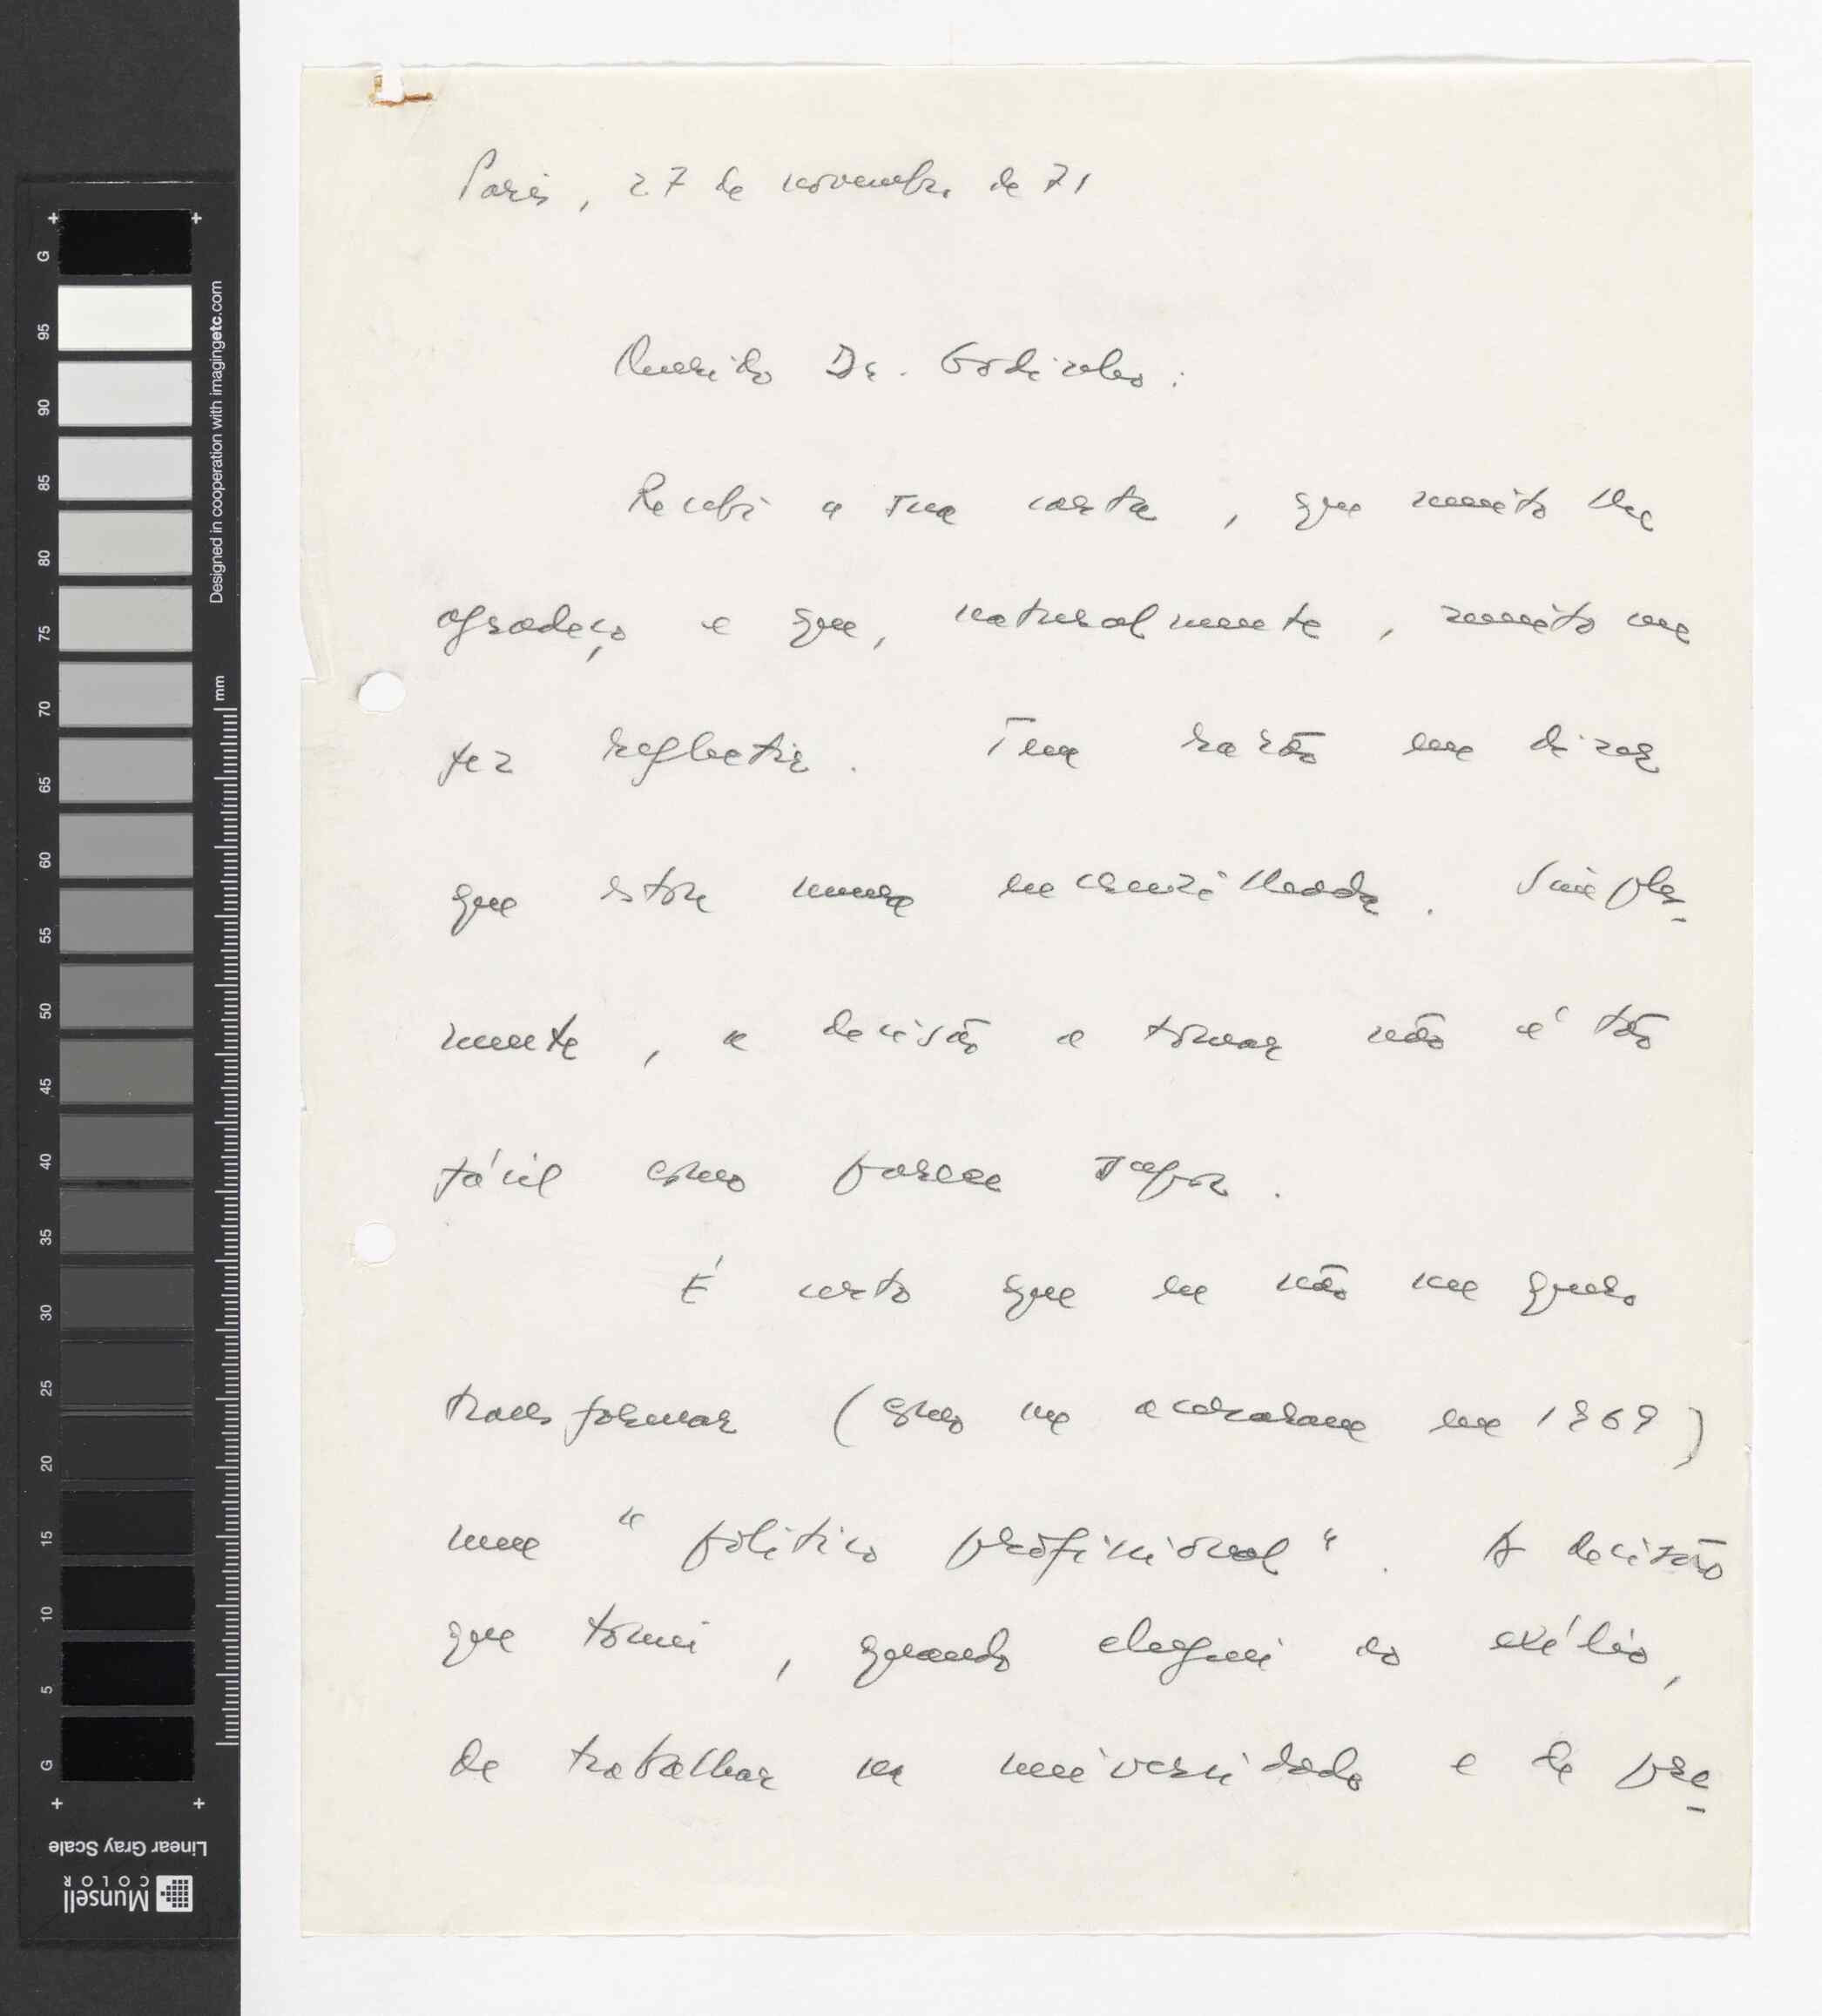 Paris, 27 de novembro de 71
Querido Dr. Godinho:
Recebi a sua carta, que muito lhe
agradeço e que, naturalmente, muito me
fez reflectir. Tem razão em dizer
que estou numa encruzilhada. Simples-
mente, a decisão a tomar não é tão
fácil como parece supor.
É certo que eu não me quero
transformar (como me acusaram em 1969)
num "político profissional". A decisão
que tomei, quando cheguei ao exílio,
de trabalhar na universidade e de pre-
Designed in cooperation with imagingetc.com
mm
G
95
90
85
80
75
70
65
60
55
50
45
40
35
30
25
20
15
10
5
G
Linear Gray Scale
Munsell
COLOR